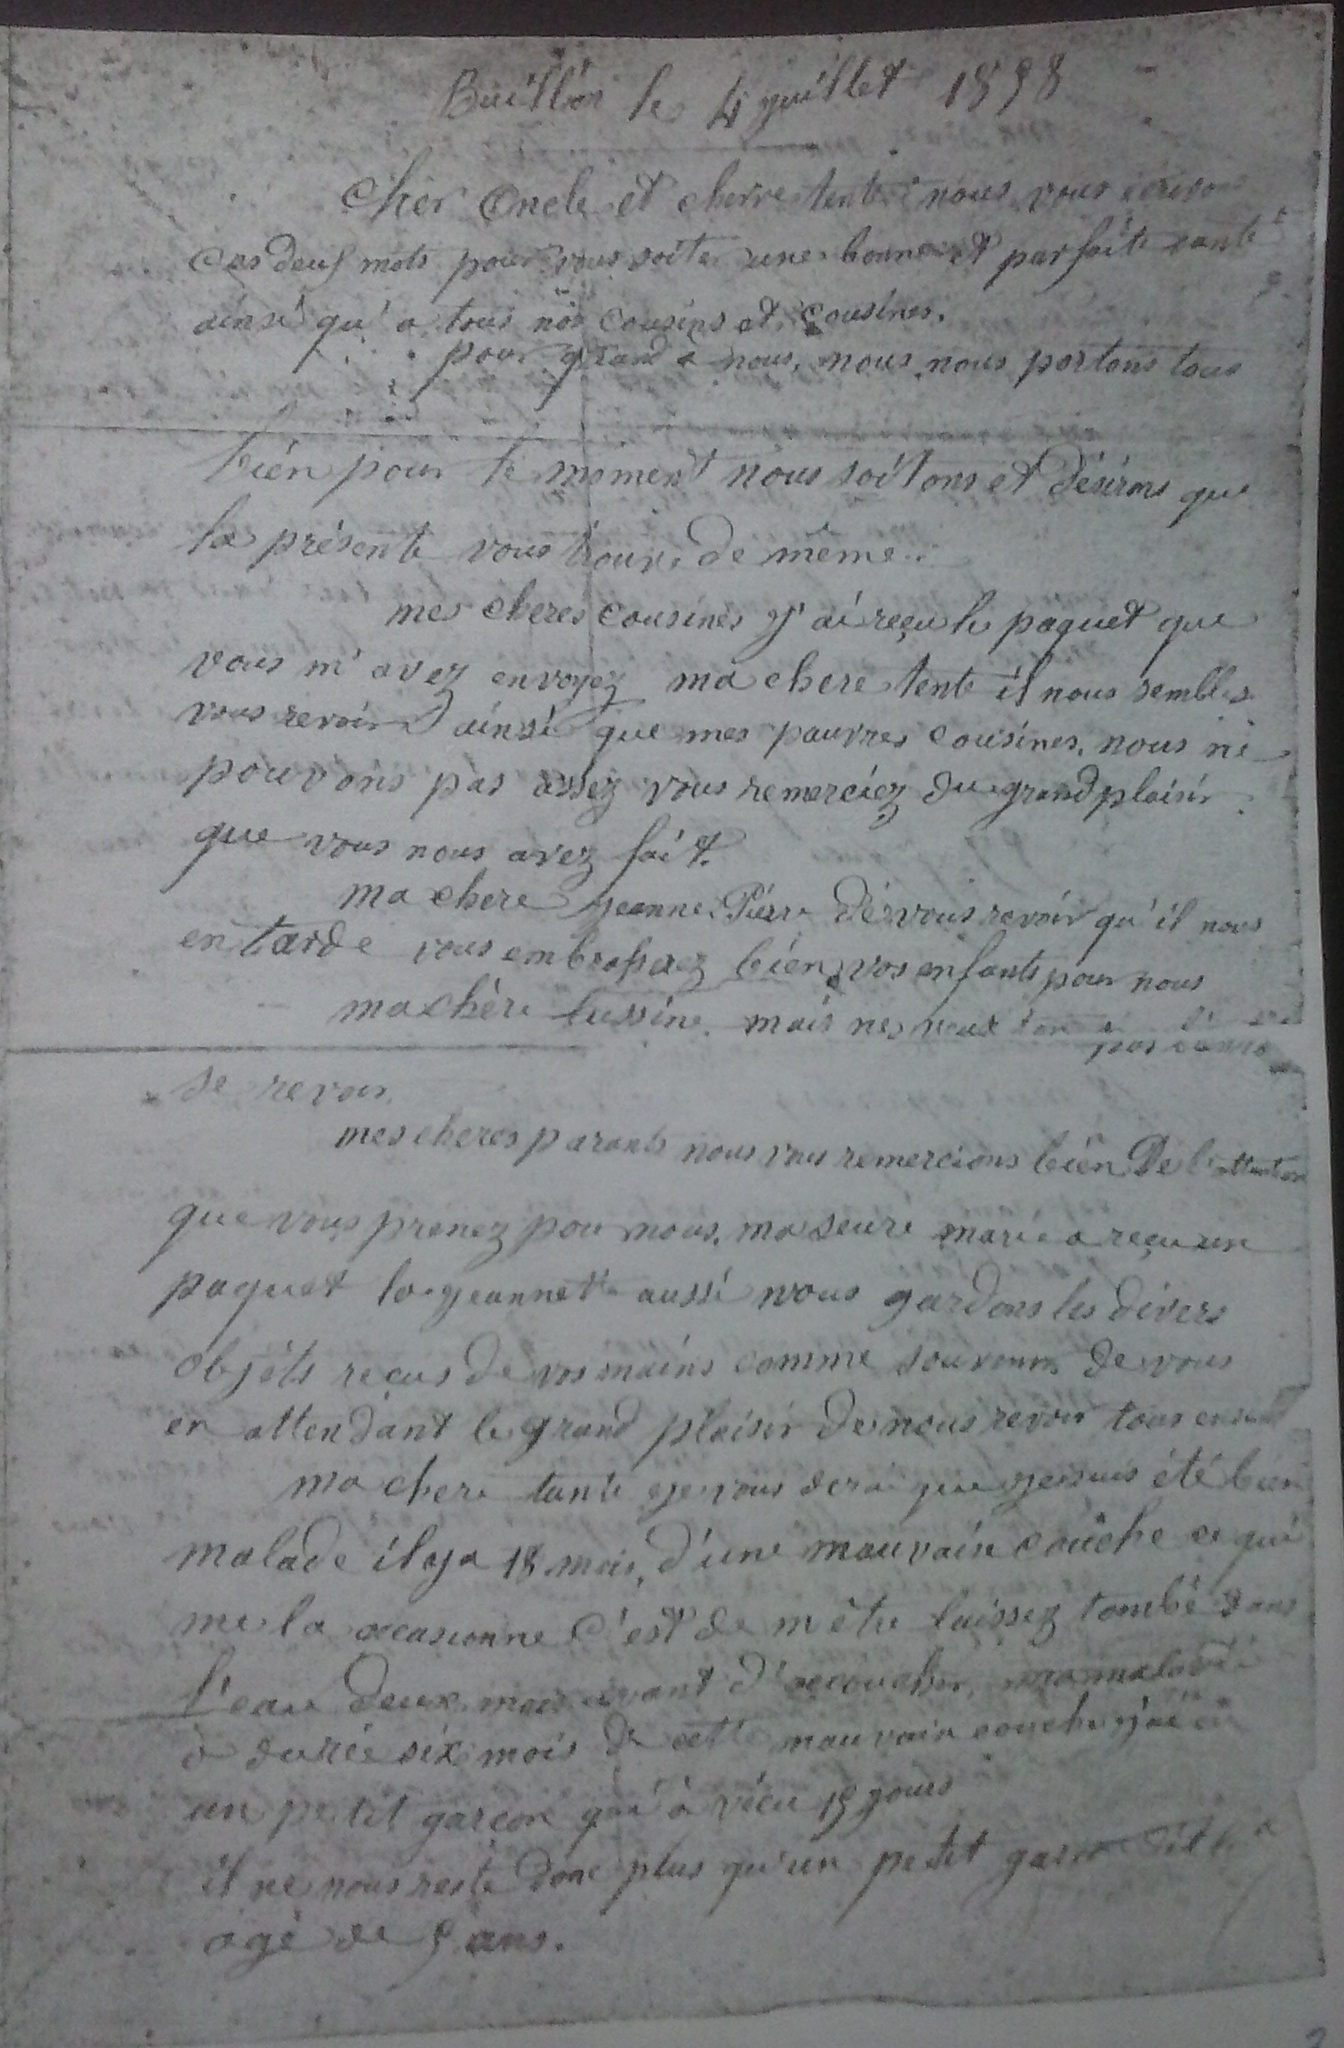 Buillon le 4 juillet 1898
Cher Oncle et cherre tente nous vous ecrivons
Ces deux mots pour vous soiter une bonne et parfaite santé
ainsi qu'a tous nos cousins et cousines.
pour quand a nous, nous nous portons tous
bién pour le moment nous soitons et désirons que
la présente vous trouve de même.
mes cheres cousines j'ai reçu le paquet que
vous m'avez envoyez ma chere tente il nous semble
vous revoir ainsi que mes pauvres cousines, nous ne
pouvons pas assez vous remerciez du grand plaisir
que vous nous avez fait.
ma chere jeanne Piérre de vous revoir qu'il nous
en tarde vous embrasserez bien vos enfants pour nous
ma chère Lussine mais ne
se revoir
mes cheres parants nous vous remercions bién De l'attention
que vous prenez pour nous, ma seure marie a reçu un
paquet la jeannette aussi nous gardons les divers
objéts reçus de vos mains comme souvenir de vous
en attendant le grand plaisir de nous revoir tous
ma chere tante je vous derai que je suis été bien
malade il ya 18 mois, d'une mauvaise couche ce qui
me la ocasionne C'est de m'être laissez tombé dans
l'eau deux mois avant d'accoucher, ma maladie
à durée six mois de cette mauvaise couche j'ai
un petit garçon qui à vécu 15 jours
il ne nous reste donc plus qu'un petit
agé de 5 ans.